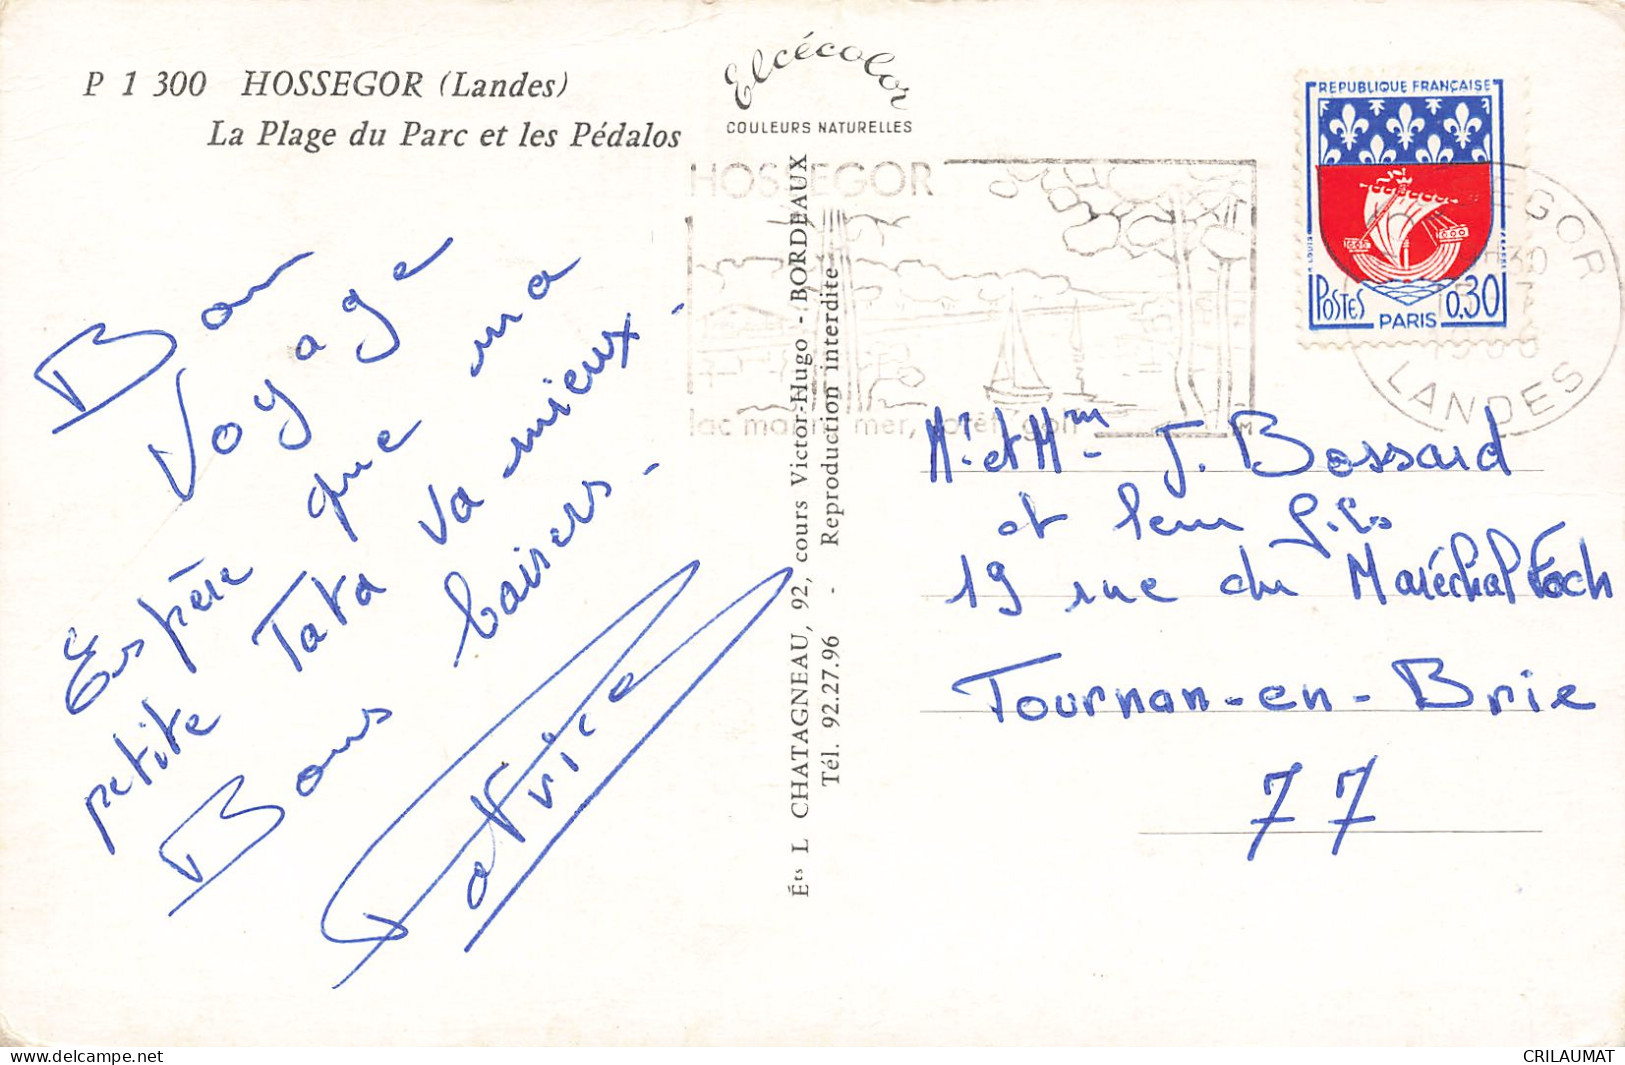 P 1 300 HOSSEGOR (Landes)
La Plage du Parc et les Pédalos
Elcécolor
COULEURS NATURELLES
HOSSEGOR
lac marin, mer, forêt, golf
REPUBLIQUE FRANÇAISE
POSTES 0,30
PARIS
LANDES
Bon
Voyage
Espère que ma
petite Tata va mieux.
Bons baisers.
Patrice
Éts L CHATAGNEAU, 92, cours Victor-Hugo - BORDEAUX
Tél. 92.27.96 - Reproduction interdite
Mr. et Mm J. Bossard
et leur fils
19 rue du Maréchal Foch
Tournan-en-Brie
77
delcampe.net
CRILAUMAT